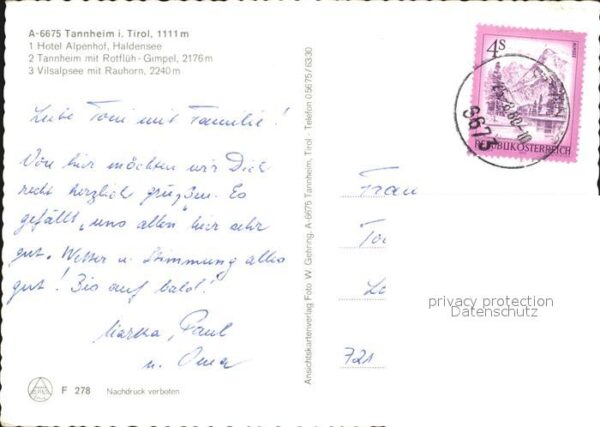 A-6675 Tannheim i. Tirol, 1111 m
1 Hotel Alpenhof, Haldensee
2 Tannheim mit Rotflüh - Gimpel, 2176 m
3 Vilsalpsee mit Rauhorn, 2240 m
Liebe Toni mit Familie!
Von hier möchten wir Dich
recht herzlich grüßen. Es
gefällt uns allen hier sehr
gut. Wetter u. Stimmung alles
gut! Bis auf bald!
Martha, Paul
u. Oma
F 278 Nachdruck verboten
Ansichtskartenverlag Foto W. Gehring, A-6675 Tannheim, Tirol · Telefon 05675/6330
4 S
REPUBLIK ÖSTERREICH
6673
Frau
To
721
privacy protection
Datenschutz